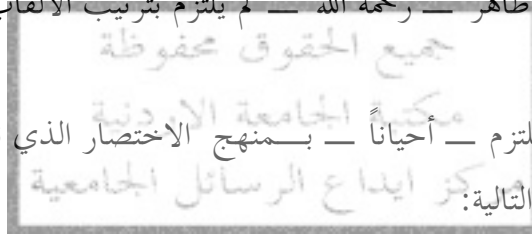 طاهر ــ رحمه الله ــ لم يلتزم بترتيب الألقاب
جميع الحقوق محفوظة
مكتبة الجامعة الاردنية
لتزم ــ أحياناً ــ بــمنهج الاختصار الذي
مركز ايداع الرسائل الجامعية
التالية: